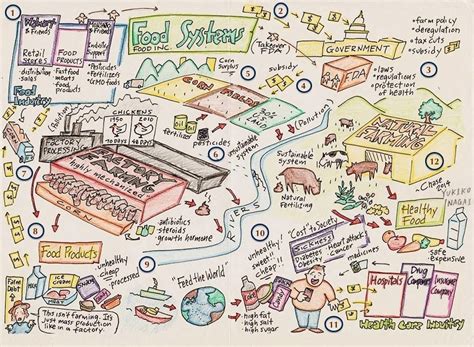 1
2
Food Systems
FOOD INC.
& Friends
& Friends
Retail
Stores
FOOD
PRODUCTS
Industry
Support
• distribution
• Fast food
meats
food
products
• Pesticides
• Fertilizers
• GMO foods
Food
Industry
Takeover
FDA
GOVERNMENT
• farm policy
• deregulation
• tax cuts
• subsidy
3
FDA
• laws
• regulations
• protection
of health
4
subsidy
Corn
Surplus
5
CORN
fertilizer
oil
pesticides
6
unsustainable
system
(Pollution)
RIVERS
CHICKENS
1950
2010
FACTORY
PROCESSING
7
FACTORY
FARMING
highly mechanized
CORN
8
• antibiotics
• steroids
• growth hormone
sustainable
system
Natural
Fertilizing
NATURAL
FARMING
12
• Chase
YUKIKO
NAGAI
Healthy
Food
• safe
• expensive
Food Products
• unhealthy
• cheap
• processed
9
Farm
Debt
ICE
CREAM
MEAT
This isn't farming. It's
just mass production
like in a factory.
"Feed the World"
10
unhealthy
sweet
cheap
• high fat
• high salt
• high sugar
"Cost to Society"
SICKNESS
Diabetes
Obesity
heart attack
cancer
medicines
11
Hospitals
Drug
Company
Insurance
Company
Health Care Industry